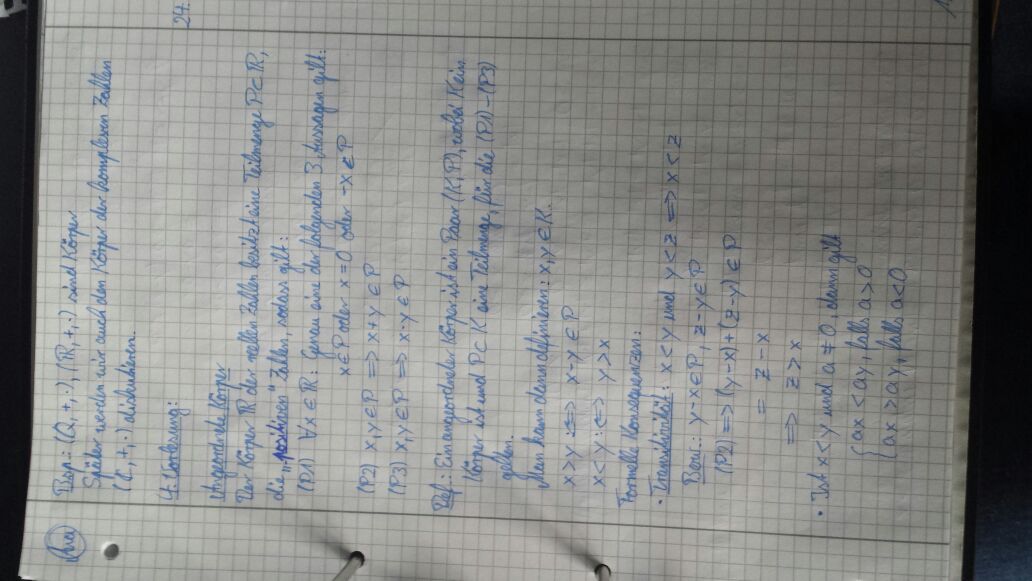 24.
Ana
Bsp.: (Q, +, ·), (R, +, ·) sind Körper
Später werden wir auch den Körper der komplexen Zahlen
(C, +, ·) diskutieren.
4. Vorlesung:
Angeordnete Körper
Der Körper R der reellen Zahlen besitzt eine Teilmenge P⊂R,
die "positiven" Zahlen, sodass gilt:
(P1) ∀x∈R: Genau eine der folgenden 3 Aussagen gilt:
x∈P oder x=0 oder -x∈P
(P2) x,y∈P ⇒ x+y∈P
(P3) x,y∈P ⇒ x·y∈P
Def.: Ein angeordneter Körper ist ein Paar (K,P), wobei K ein
Körper ist und P⊂K eine Teilmenge, für die (P1)-(P3)
gelten.
Man kann dann definieren: x,y∈K.
x>y :⇔ x-y∈P
x<y :⇔ y>x
Formelle Konsequenzen:
• Transitivität: x<y und y<z ⇒ x<z
Bew.: y-x∈P, z-y∈P
(P2) ⇒ (y-x)+(z-y)∈P
= z-x
⇒ z>x
• Ist x<y und a≠0, dann gilt
{ax<ay, falls a>0
{ax>ay, falls a<0